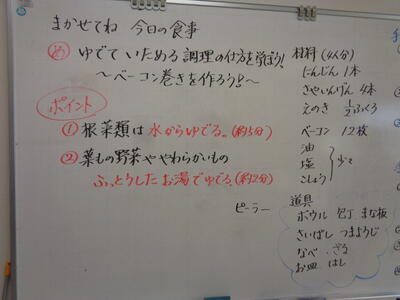 まかせてね 今日の食事
め ゆでていためる調理の仕方を学ぼう!
〜ベーコン巻きを作ろう!〜
ポイント
① 根菜類は水からゆでる。(約5分)
② 葉もの野菜ややわらかいもの
ふっとうしたお湯でゆでる。(約2分)
ピーラー
材料(4人分)
にんじん 1本
さやいんげん 4本
えのき 1/2ふくろ
ベーコン 12枚
油
塩
こしょう
少々
道具
ボウル 包丁 まな板
さいばし つまようじ
なべ ざる
お皿 はし